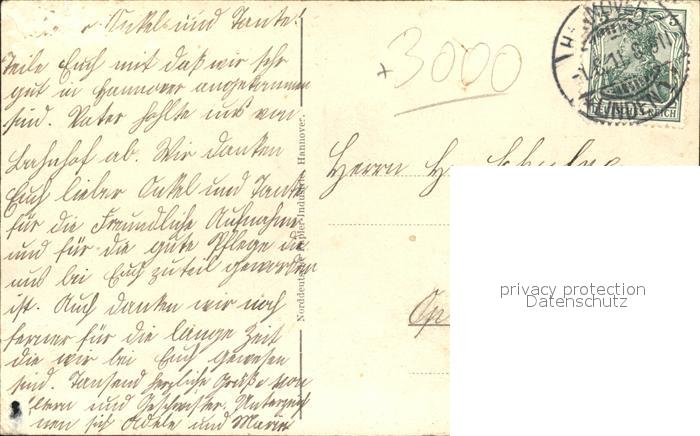 Onkel und Tante!
Teile Euch mit daß wir sehr
gut in Hannover angekommen
sind. Vater hohlte uns von
Bahnhof ab. Wir danken
Euch lieber Onkel und Tante
für die Freundliche Aufnahme
und für die gute Pflege die
uns bei Euch zuteil geworden
ist. Auch danken wir noch
ferner für die lange Zeit
die wir bei Euch gewesen
sind. Tausend herzliche Grüße von
Eltern und Geschwister. Unterzeich
nen sich Adele und Marie
Norddeutsche Papier-Industrie, Hannover.
+ 3000
HANNOVER
LINDEN
5
REICH
Herrn H. Schulze
privacy protection
Datenschutz
Op